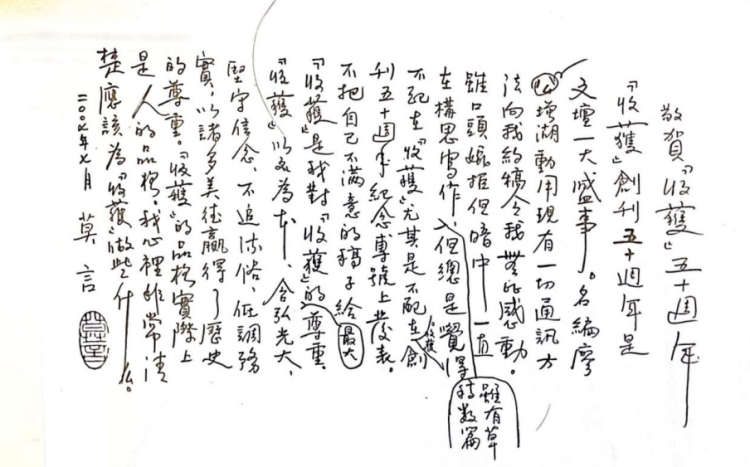 敬賀「收獲」五十週年
「收獲」創刊五十週年是
文壇一大盛事。名編廖
增湖動用現有一切通訊方
法向我約稿令我無比感動。
雖口頭婉拒但暗中一直
在構思寫作,但總是覺得
雖有草
稿數篇
不配在「收獲」尤其是不配在創
收獲
刊五十週年紀念專號上發表。
不把自己不滿意的稿子給
「收獲」是我對「收獲」的尊重。
最大
「收獲」以文為本、含弘光大、
堅守信念、不追流俗、低調務
實,以諸多美德贏得了歷史
的尊重。「收獲」的品格實際上
是人的品格。我心裡非常清
楚應該為「收獲」做些什么。
二00七年七月 莫言